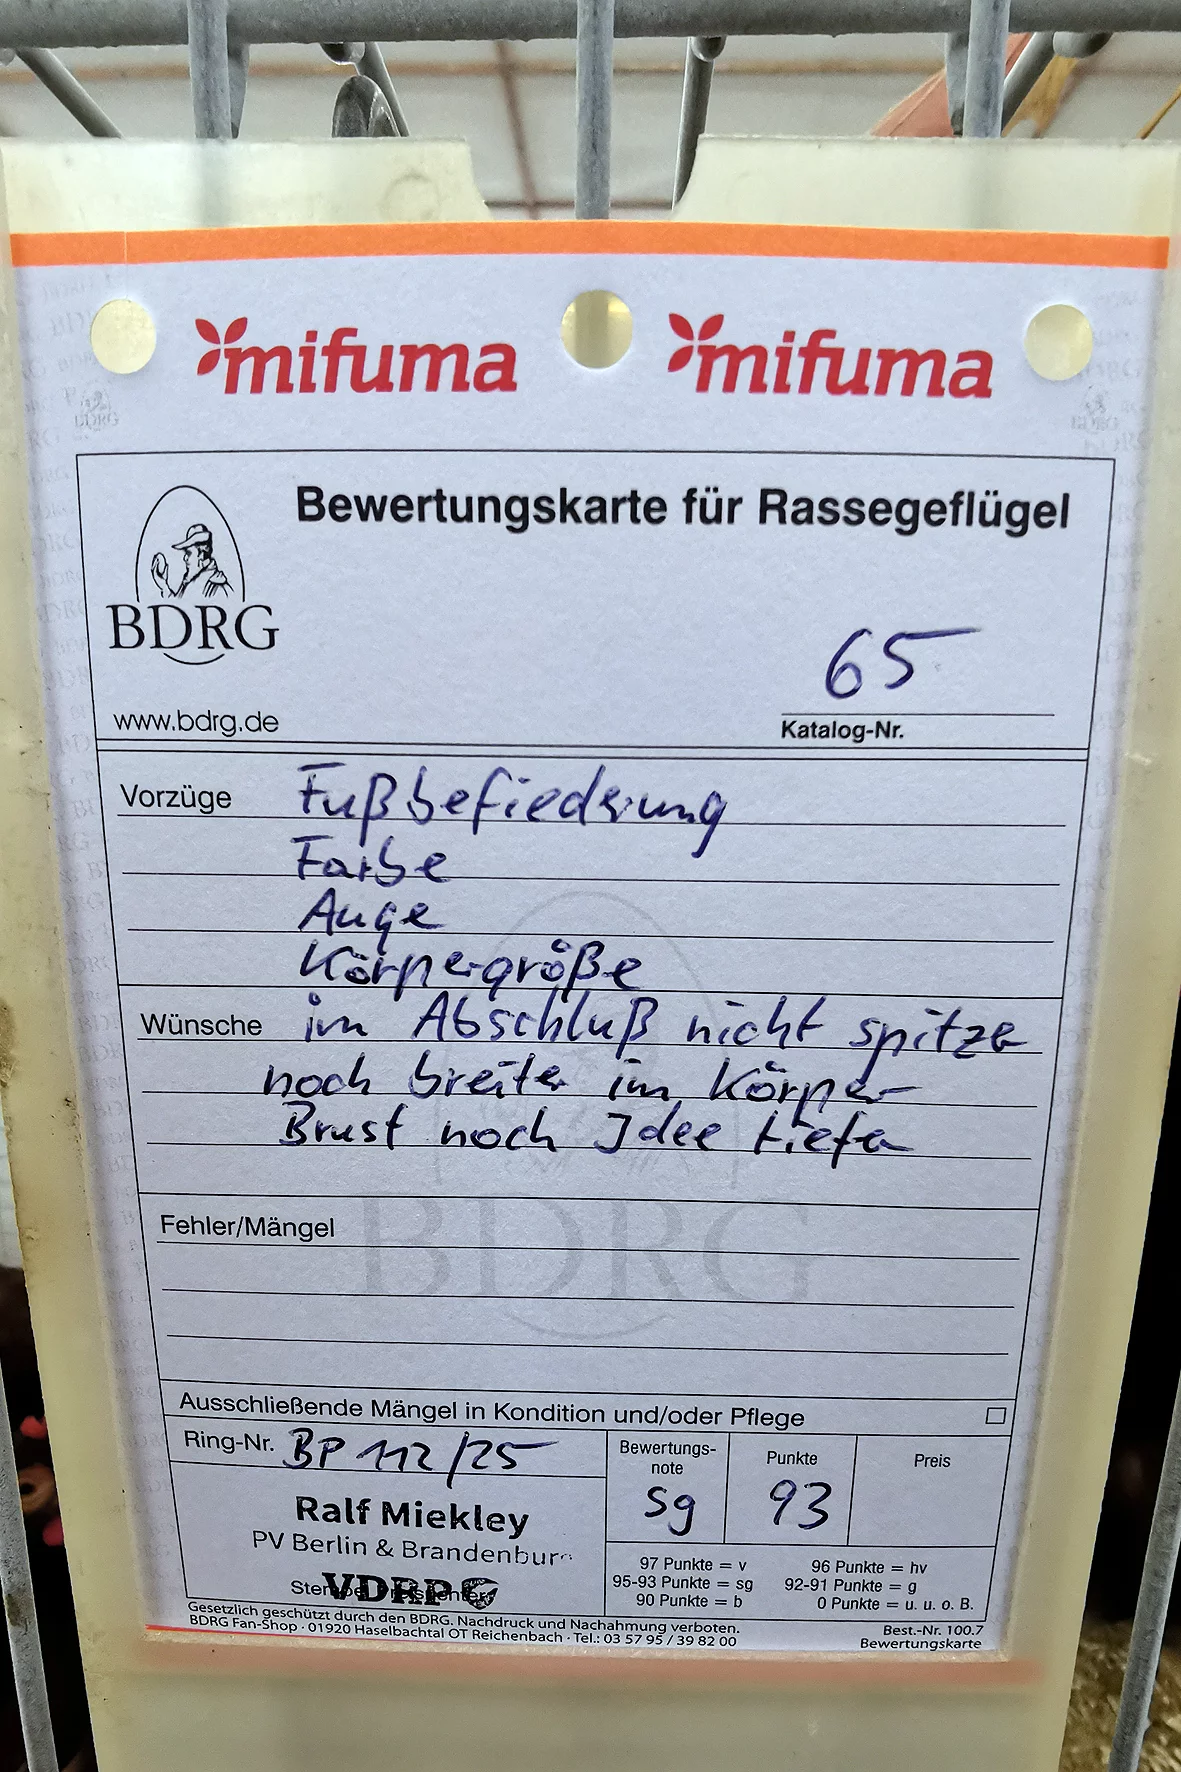 mifuma mifuma
Bewertungskarte für Rassegeflügel
BDRG
www.bdrg.de
65
Katalog-Nr.
Vorzüge Fußbefiederung
Farbe
Auge
Körpergröße
Wünsche im Abschluß nicht spitze
noch breiter im Körper
Brust noch Idee tiefer
Fehler/Mängel
BDRG
Ausschließende Mängel in Kondition und/oder Pflege
Ring-Nr. BP 112/25
Bewertungs-
note
sg
Punkte
93
Preis
Ralf Miekley
PV Berlin & Brandenburg
VDRP
97 Punkte = v 96 Punkte = hv
95-93 Punkte = sg 92-91 Punkte = g
90 Punkte = b 0 Punkte = u. u. o. B.
Gesetzlich geschützt durch den BDRG. Nachdruck und Nachahmung verboten.
BDRG Fan-Shop · 01920 Haselbachtal OT Reichenbach · Tel.: 03 57 95 / 39 82 00
Best.-Nr. 100.7
Bewertungskarte